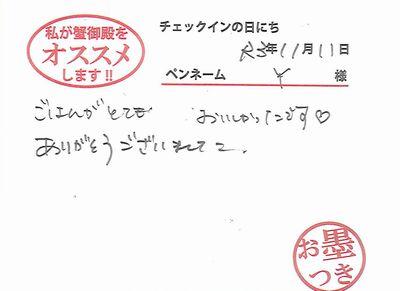 私が蟹御殿を
オススメ
します!!
チェックインの日にち
R5年11月11日
ペンネーム Y 様
ごはんがとても おいしかったです♡
ありがとうございました。
お墨
つき